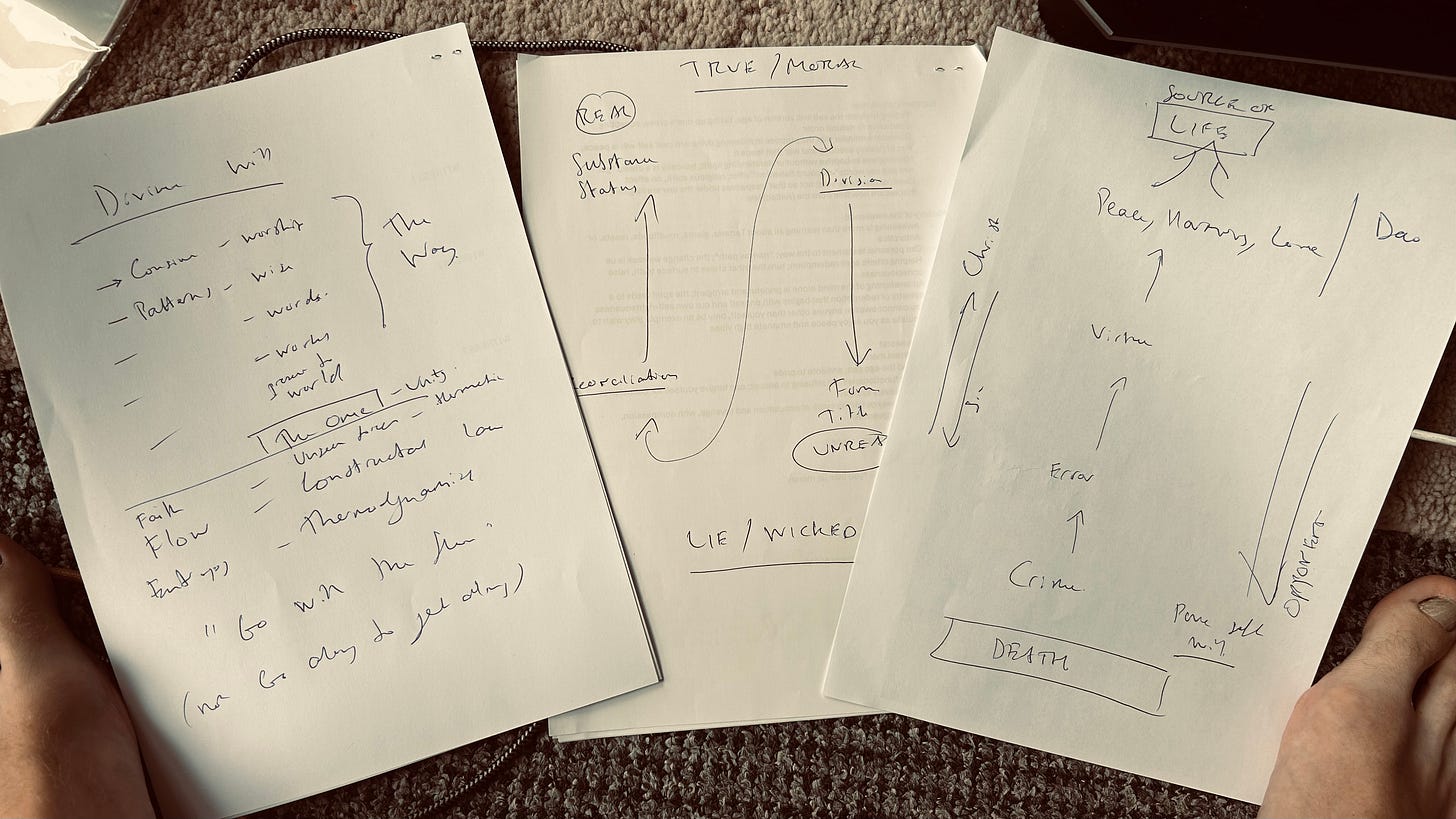 Divine Will
→ Consume - worship
- Patterns - wise
- - words.
- - works
power of
world
The Way.
The One - Unity.
Unseen forces - Hermetic
Faith - Constructal law
Flow -
Entropy - Thermodynamics
"Go with the flow"
(not Go along to get along)
TRUE / MORAL
REAL
Substance
Status
Division
conciliation
Form
Title
UNREA
LIE / WICKED
SOURCE OF
LIFE
Peace, Harmony, Love
Dao
Christ
Sin
Virtue
Error
Crime
Opporters
Pure self
will
DEATH